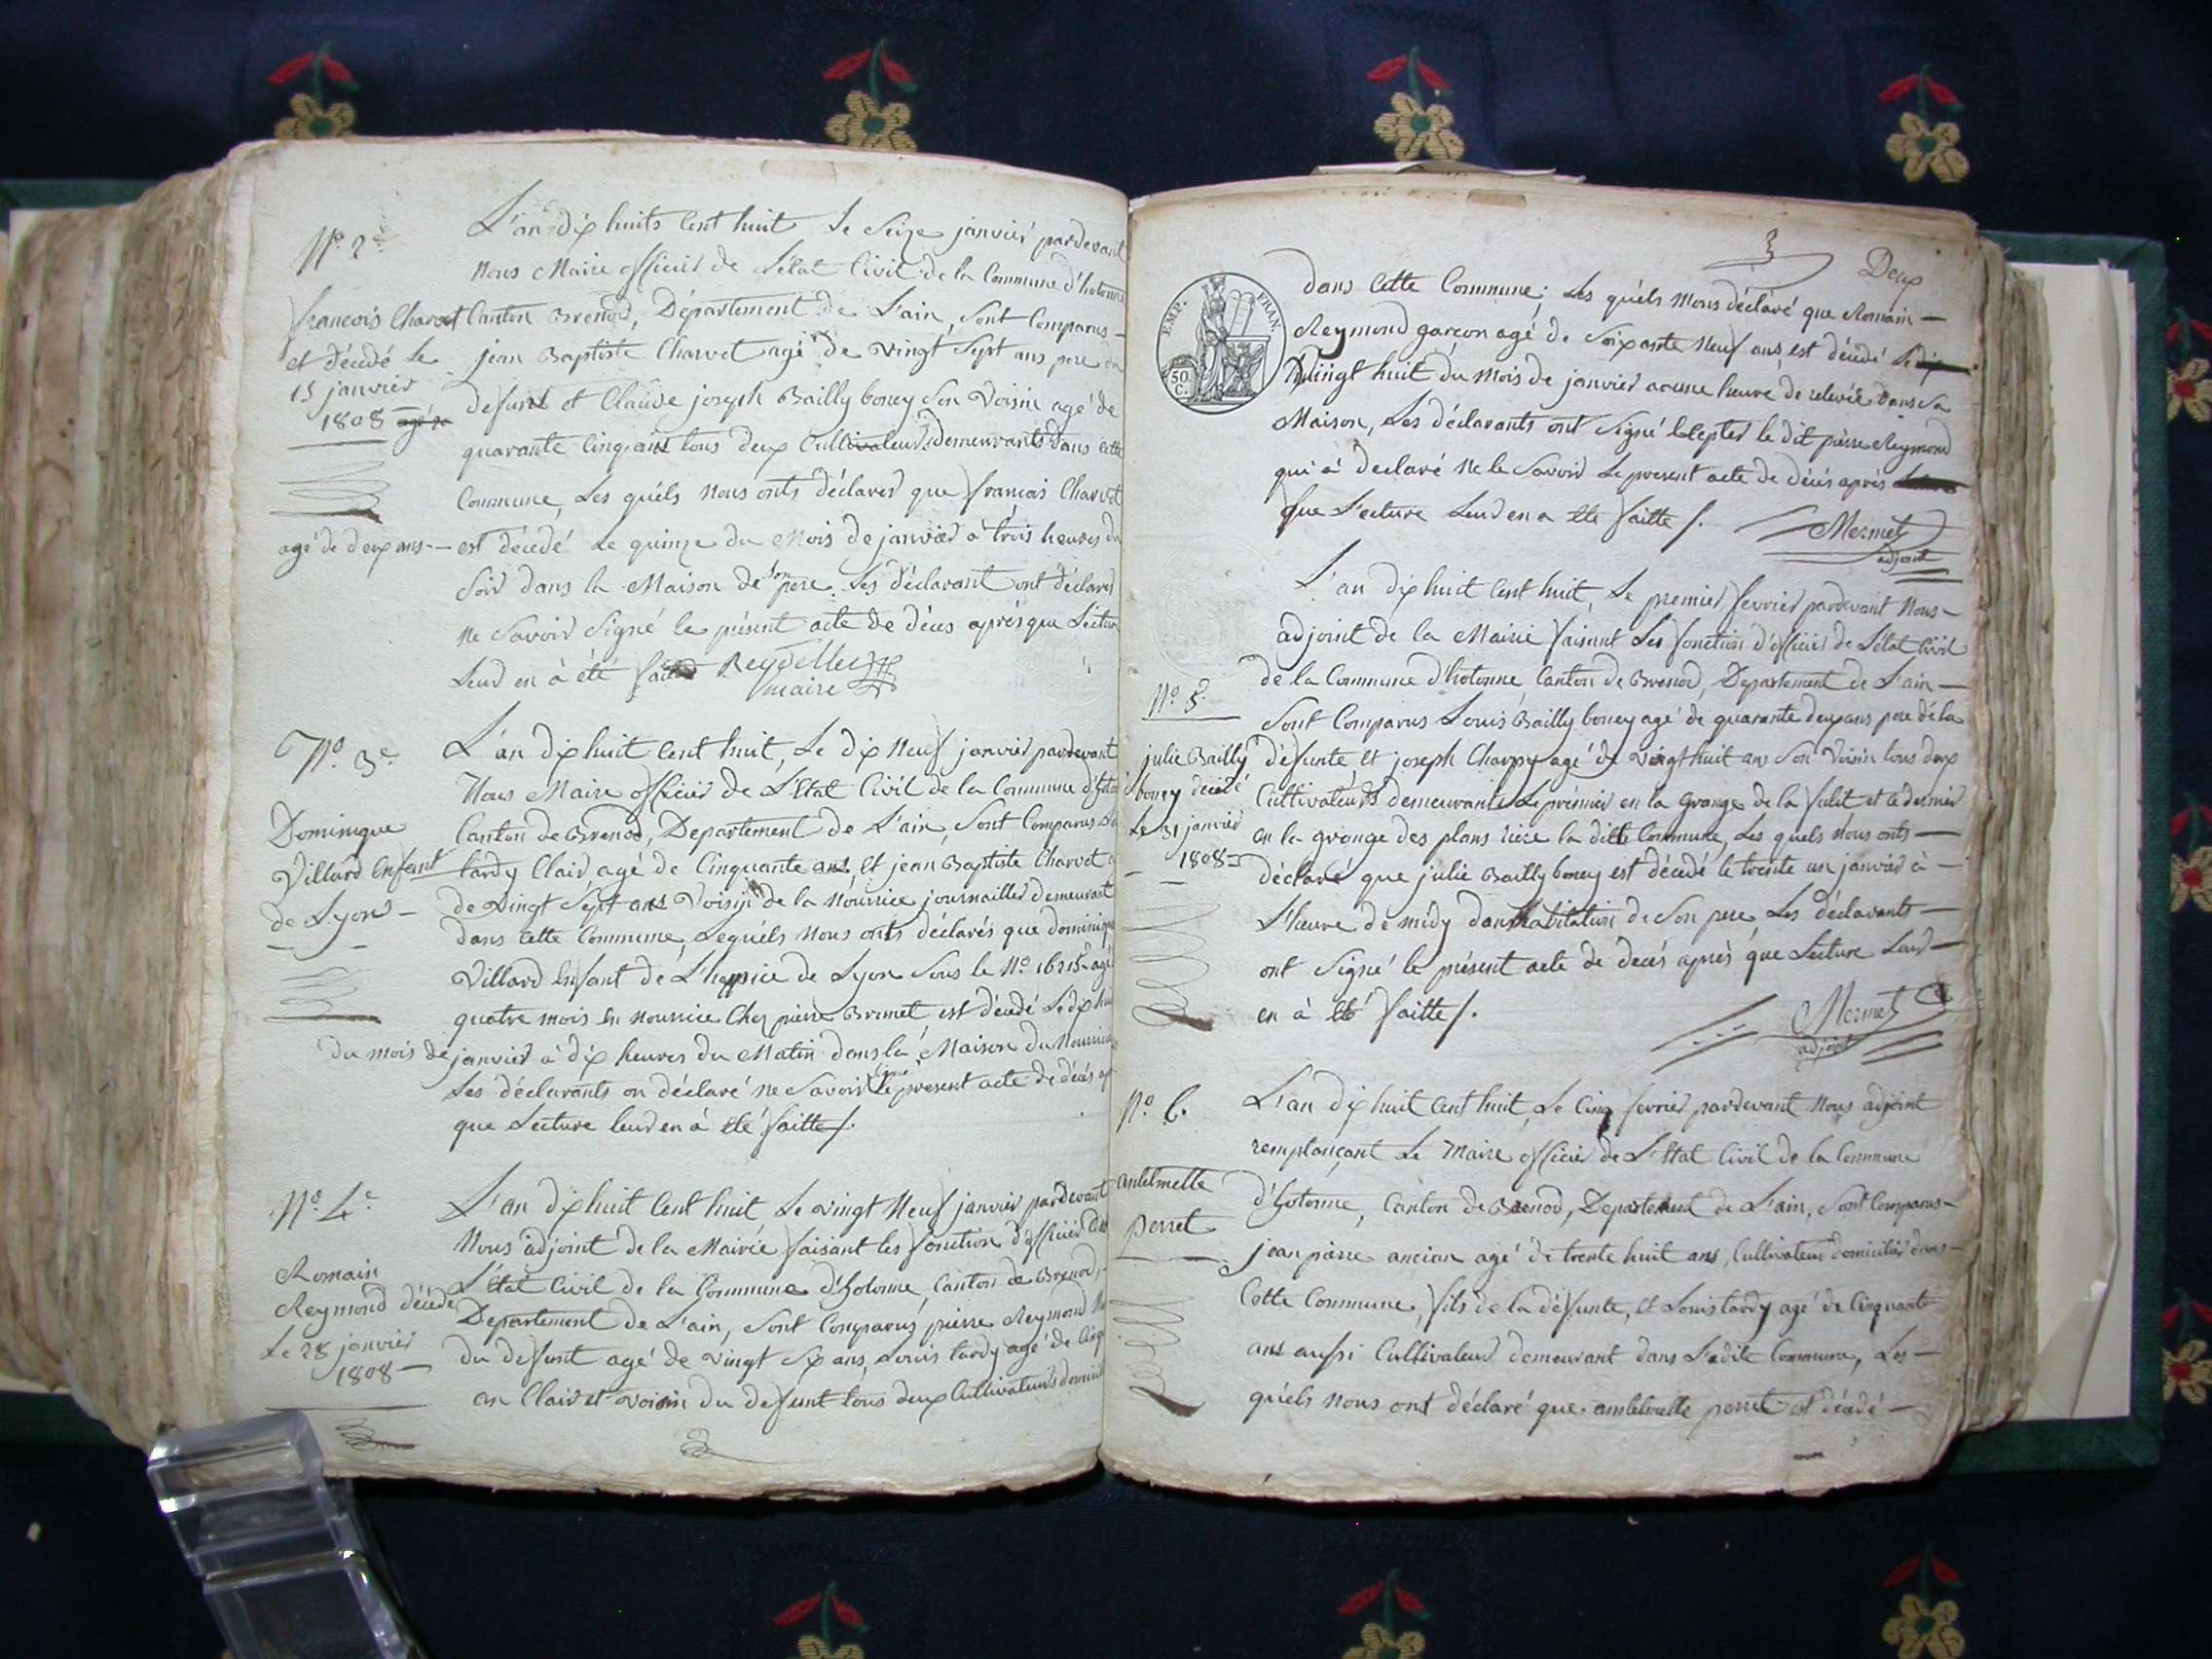 N.º 2.e
L'an dix huits Cent huit Le Seize janvier pardevant
Nous Maire officier de L'état Civil de la Commune d'hotonne
Canton Brenod, Département de L'ain, Sont Comparus —
jean Baptiste Charvet agé de vingt Sept ans, pere du
defunt et Claude joseph Bailly boney Son Voisin agé de
quarante Cinq ans tous deux Cultivateurs demeurants dans cette
Commune, Les quéls Nous onts déclarer que françois Charvet
est décédé Le quinze du Mois de janvier à trois heures du
Soir dans la Maison de son pere. Les déclarant ont déclarer
ne Savoir Signé le présent acte de décès après que Lecture
Leur en à été faitte Reydellet
maire
françois Charvet
et décédé Le
15 janvier
1808 agé de
agé de deux ans —
N.º 3.e
L'an dix huit Cent huit, Le dix Neuf janvier pardevant
Nous Maire officier de L'Etat Civil de la Commune d'hoto
Canton de Brenod, Departement de L'ain, Sont Comparus
tardy Clair agé de Cinquante ans Et jean Baptiste Charvet a
de Vingt Sept ans Voisin de la Nourrice journaillier demeurant
dans Cette Commune, Lequéls Nous onts déclarés que dominique
Villard Enfant de L'hospice de Lyon Sous le N.º 16215 agé
quatre mois En nourrice Chez pierre Brunet, est décédé Le dix hui
du mois de janvier à dix heures du Matin dans la Maison du Nourricier
Les déclarants on déclaré ne Savoir signé le present acte de décés ap
que Lecture leur en à été faitte /.
Dominique
Villard Enfant
de Lyon —
N.º 4.e
L'an dix huit Cent huit Le vingt Neuf janvier pardevant
Nous adjoint de la Mairie faisant les fonction d'officier de
L'Etat Civil de la Commune d'hotonne, Canton de Brenod,
Departement de L'ain, Sont Comparus pierre Reymond
du defunt agé de vingt Six ans, Louis tardy agé de Cinq
an Clair et voisin du defunt tous deux Cultivateurs domicil
Romain
Reymond décédé
Le 28 janvier
1808 —
Deux
EMP. FRAN.
50 C.
dans Cette Commune; Les quéls Nous déclaré que Romain —
Reymond garçon agé de Soixante Neuf ans, est décédé Le dix
vingt huit du Mois de janvier aucune heure de relevée dans Sa
Maison, Les déclarants ont Signé Excepter le dit pierre Reymond
qui à declaré ne le Savoir Le present acte de décés après
que Lecture Leur en a été faitte /. Mermet
adjoint
L'an dix huit Cent huit, Le premier fevrier pardevant Nous —
adjoint de la Mairie faisant Les fonction d'officier de L'état Civil
de la Commune d'hotonne, Canton de Brenod, Departement de L'ain —
N.º 5
Sont Comparus Louis Bailly boney agé de quarante deux ans pere de la
défunte Et joseph Charpy agé de vingt huit ans Son Voisin tous deux
Cultivateurs demeurants Le prémier en la Grange de la fulit et le dernier
en la grange des plans riere la ditte Commune, Les quels Nous onts —
déclaré que julie Bailly boney est décédé le trente un janvier à —
L'heure de midy dans habitation de Son pere, Les déclarants —
ont Signé le présent acte de decés après que Lecture Leur —
en à été faitte /.
Mermet
adjoint
julie Bailly
boney décédé
Le 31 janvier
1808 —
N.º 6.
L'an dix huit Cent huit, Le Cinq fevrier pardevant Nous adjoint
remplançant Le Maire officier de L'Etat Civil de la Commune
d'hotonne, Canton de Brenod, Departement de L'ain, Sont Comparus —
jean pierre ancian agé de trente huit ans, Cultivateur domicilié dans —
Cette Commune, fils de la défunte, Et Louis tardy agé de Cinquante
ans aussi Cultivateur demeurant dans Ladite Commune, Les —
quéls Nous ont déclaré que anthelmette perret est décédé —
anthelmette
perret